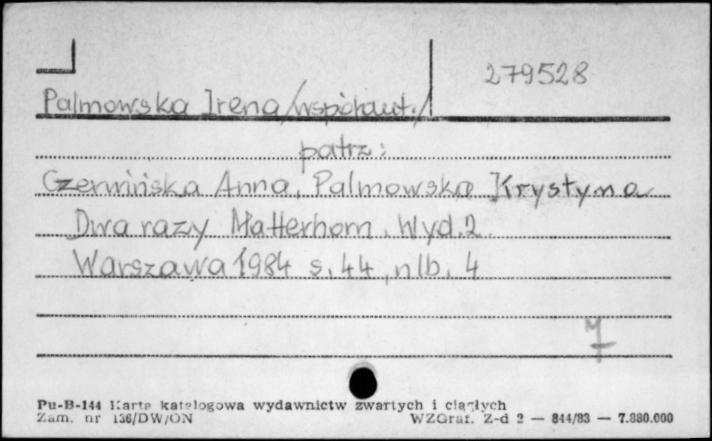 279528
Palmowska Irena /współaut./
patrz:
Czerwińska Anna, Palmowska Krystyna
Dwa razy Matterhorn. Wyd. 2.
Warszawa 1984 s. 44, nlb. 4
Pu-B-144 Karta katalogowa wydawnictw zwartych i ciągłych
Zam. nr 136/DW/ON WZGraf. Z-d 2 — 844/83 — 7.880.000